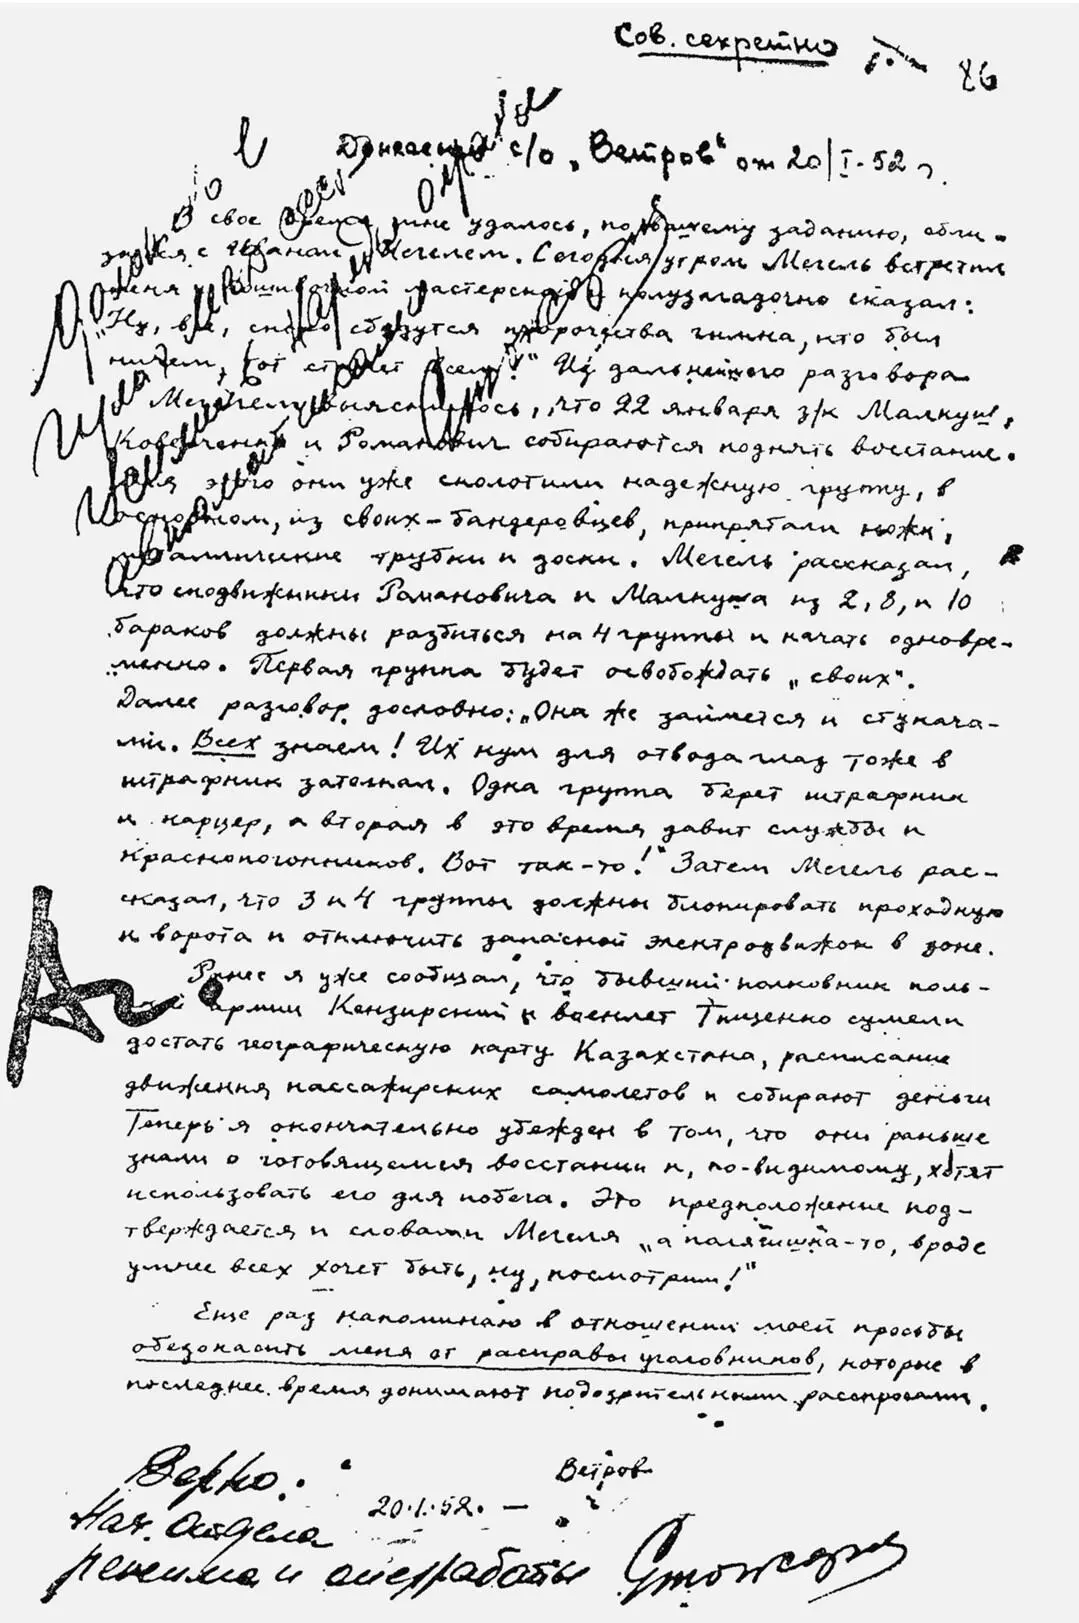 Сов. секретно
86
Донесение с/о „Ветров“ от 20/I-52 г.
В свое время мне удалось, по вашему заданию, сбли-
зиться с Иваном Мегелем. Сегодня утром Мегель встретил
меня у пошивочной мастерской и полузагадочно сказал:
„Ну, все, скоро сбудутся пророчества гимна, кто был
ничем, тот станет всем!“ Из дальнейшего разговора
с Мегелем выяснилось, что 22 января з/к Малкуш,
Коверченко и Романович собираются поднять восстание.
Для этого они уже сколотили надежную группу, в
основном, из своих-бандеровцев, припрятали ножи,
металлические трубки и доски. Мегель рассказал,
что сподвижники Романовича и Малкуша из 2, 8, и 10
бараков должны разбиться на 4 группы и начать одновре-
менно. Первая группа будет освобождать „своих“.
Далее разговор дословно: „Она же займется и стукача-
ми. Всех знаем! Их кум для отвода глаз тоже в
штрафник затолкал. Одна группа берет штрафник
и карцер, а вторая в это время давит службы и
краснопогонников. Вот так-то!“ Затем Мегель рас-
сказал, что 3 и 4 группы должны блокировать проходную
и ворота и отключить запасной электродвижок в зоне.
Ранее я уже сообщал, что бывший полковник поль-
ской армии Кензирский и военлет Тищенко сумели
достать географическую карту Казахстана, расписание
движения пассажирских самолетов и собирают деньги
Теперь я окончательно убежден в том, что они раньше
знали о готовящемся восстании и, по-видимому, хотят
использовать его для побега. Это предположение под-
тверждается и словами Мегеля „а полячишка-то, вроде
умнее всех хочет быть, ну, посмотрим!“
Еще раз напоминаю в отношении моей просьбы
обезопасить меня от расправы уголовников, которые в
последнее время донимают подозрительными расспросами.
Ветров
Верно:
20.1.52. –
Нач. отдела
режима и оперработы Стожаров